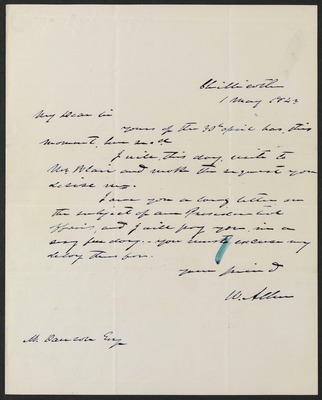 Chillicothe
1 May 1843
My Dear Sir
yours of the 30th april has this
moment been
I will this day, write to
Mr Blair and make the request you
desire me.
I owe you a long letter on
the subject of our Presidential
affairs, and I will pay you, in a
very few days. you must excuse my
delay thus far.
your friend
W. Allen
Esq